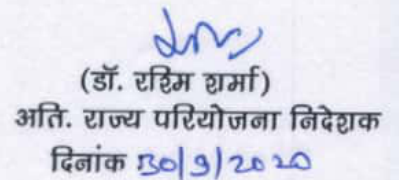 (डॉ. रश्मि शर्मा)
अति. राज्य परियोजना निदेशक
दिनांक 30/9/2020